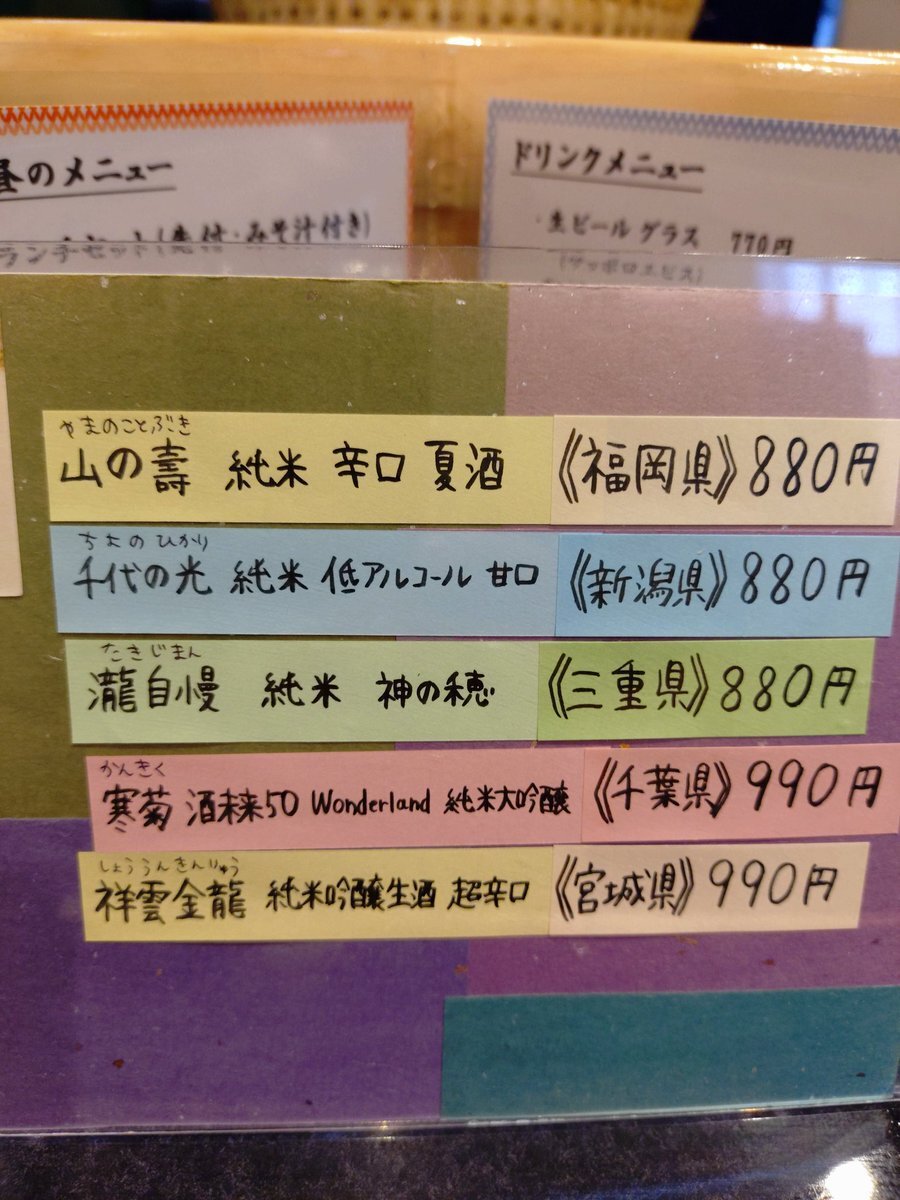 昼のメニュー
ランチセット(先付・みそ汁付き)
ドリンクメニュー
・生ビール グラス 770円
(サッポロエビス)
やまのことぶき
山の壽 純米 辛口 夏酒 《福岡県》 880円
ちよのひかり
千代の光 純米 低アルコール 甘口 《新潟県》 880円
たきじまん
瀧自慢 純米 神の穂 《三重県》 880円
かんきく
寒菊 酒未来50 Wonderland 純米大吟醸 《千葉県》 990円
しょううんきんりゅう
祥雲金龍 純米吟醸生酒 超辛口 《宮城県》 990円